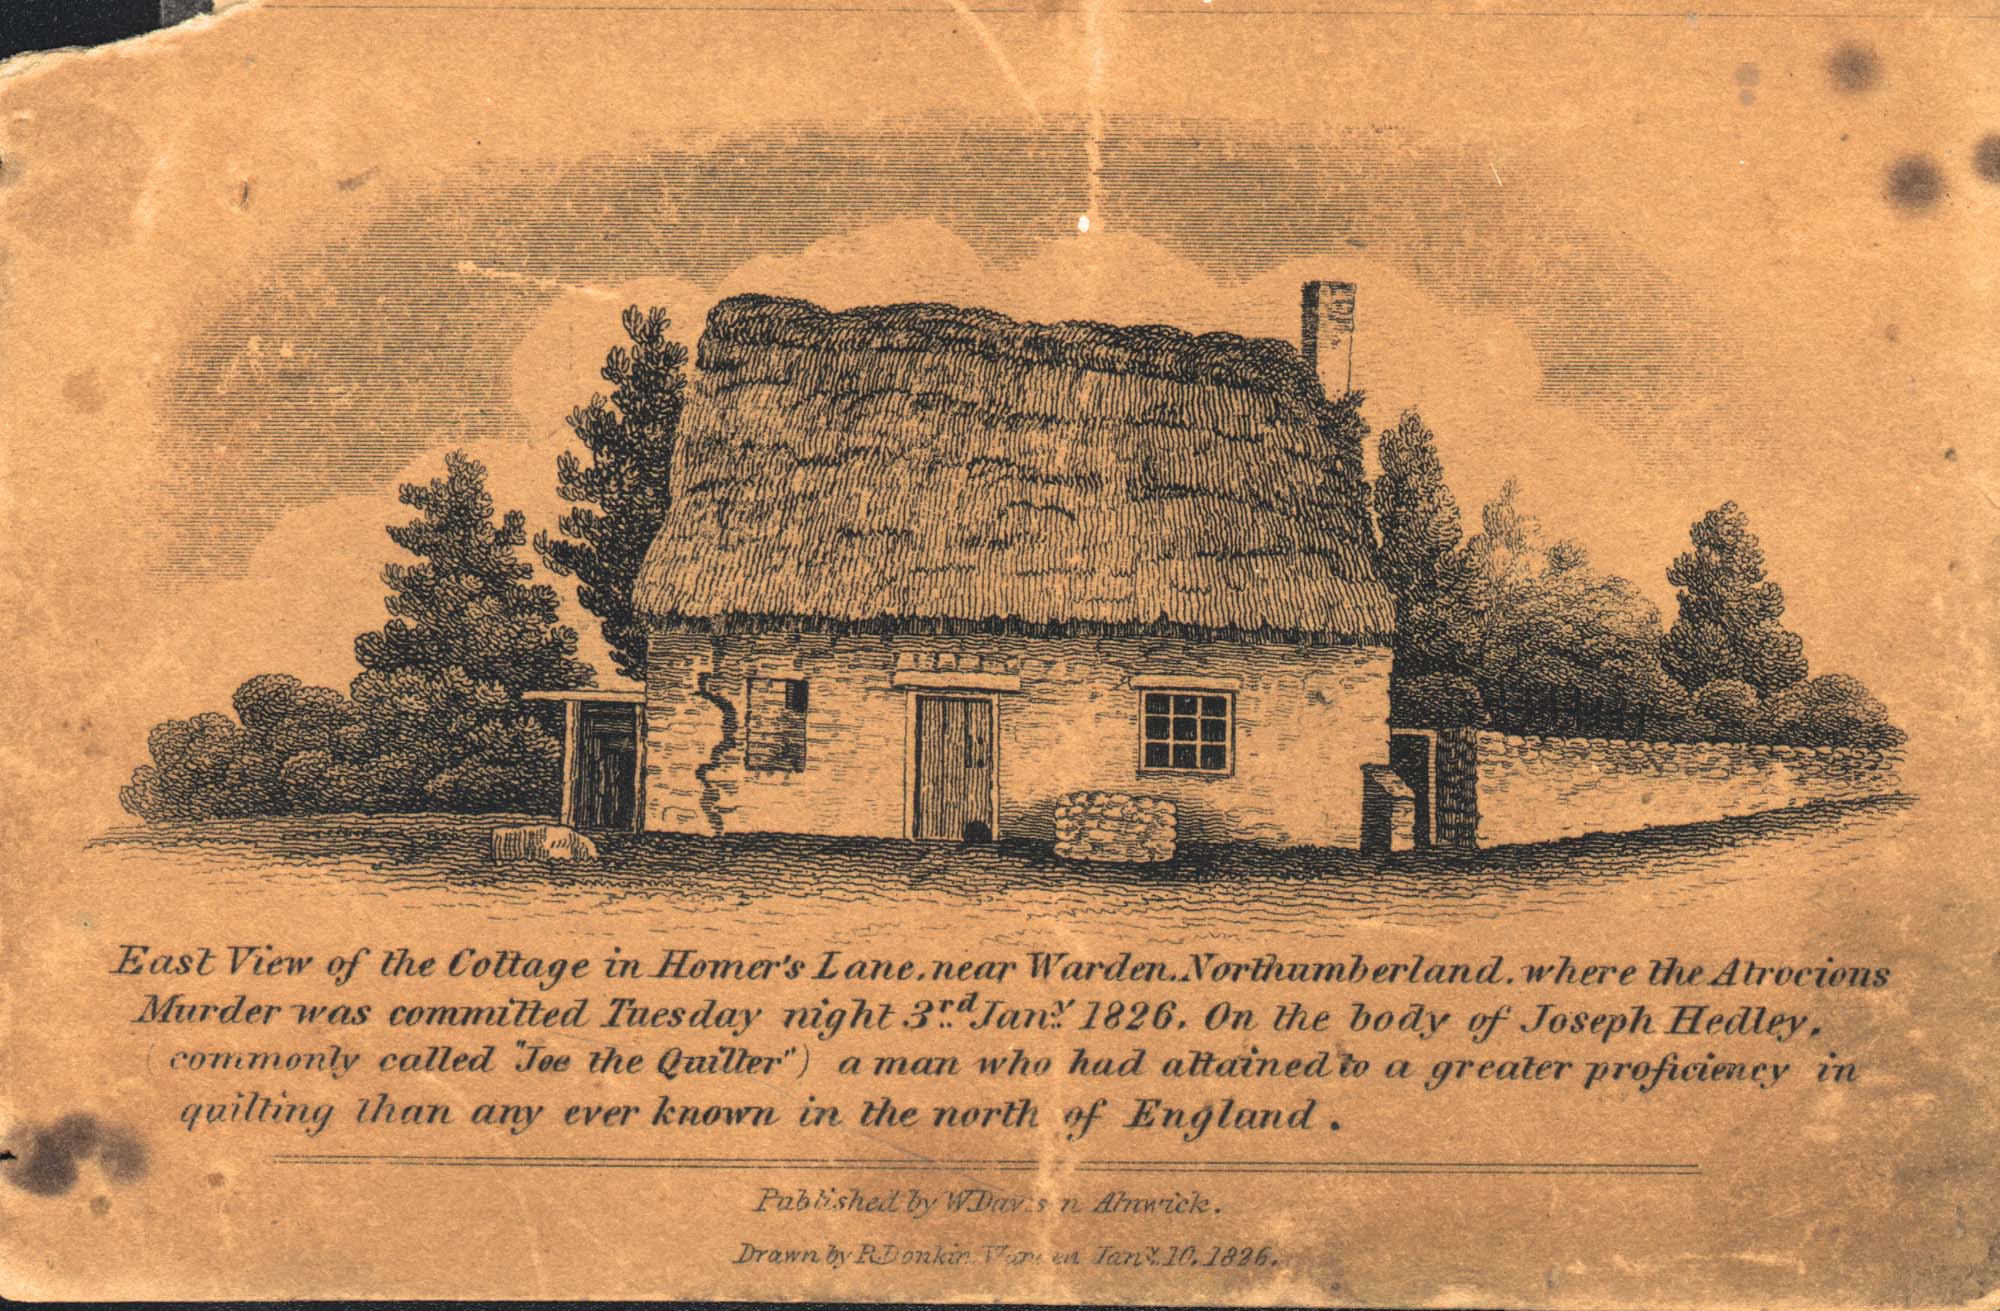 East View of the Cottage in Homer's Lane, near Warden, Northumberland, where the Atrocious
Murder was committed Tuesday night 3rd Jany 1826. On the body of Joseph Hedley,
(commonly called "Joe the Quilter") a man who had attained to a greater proficiency in
quilting than any ever known in the north of England.
Published by W Davison Alnwick.
Drawn by R Donkin Warden Jany 10, 1826.